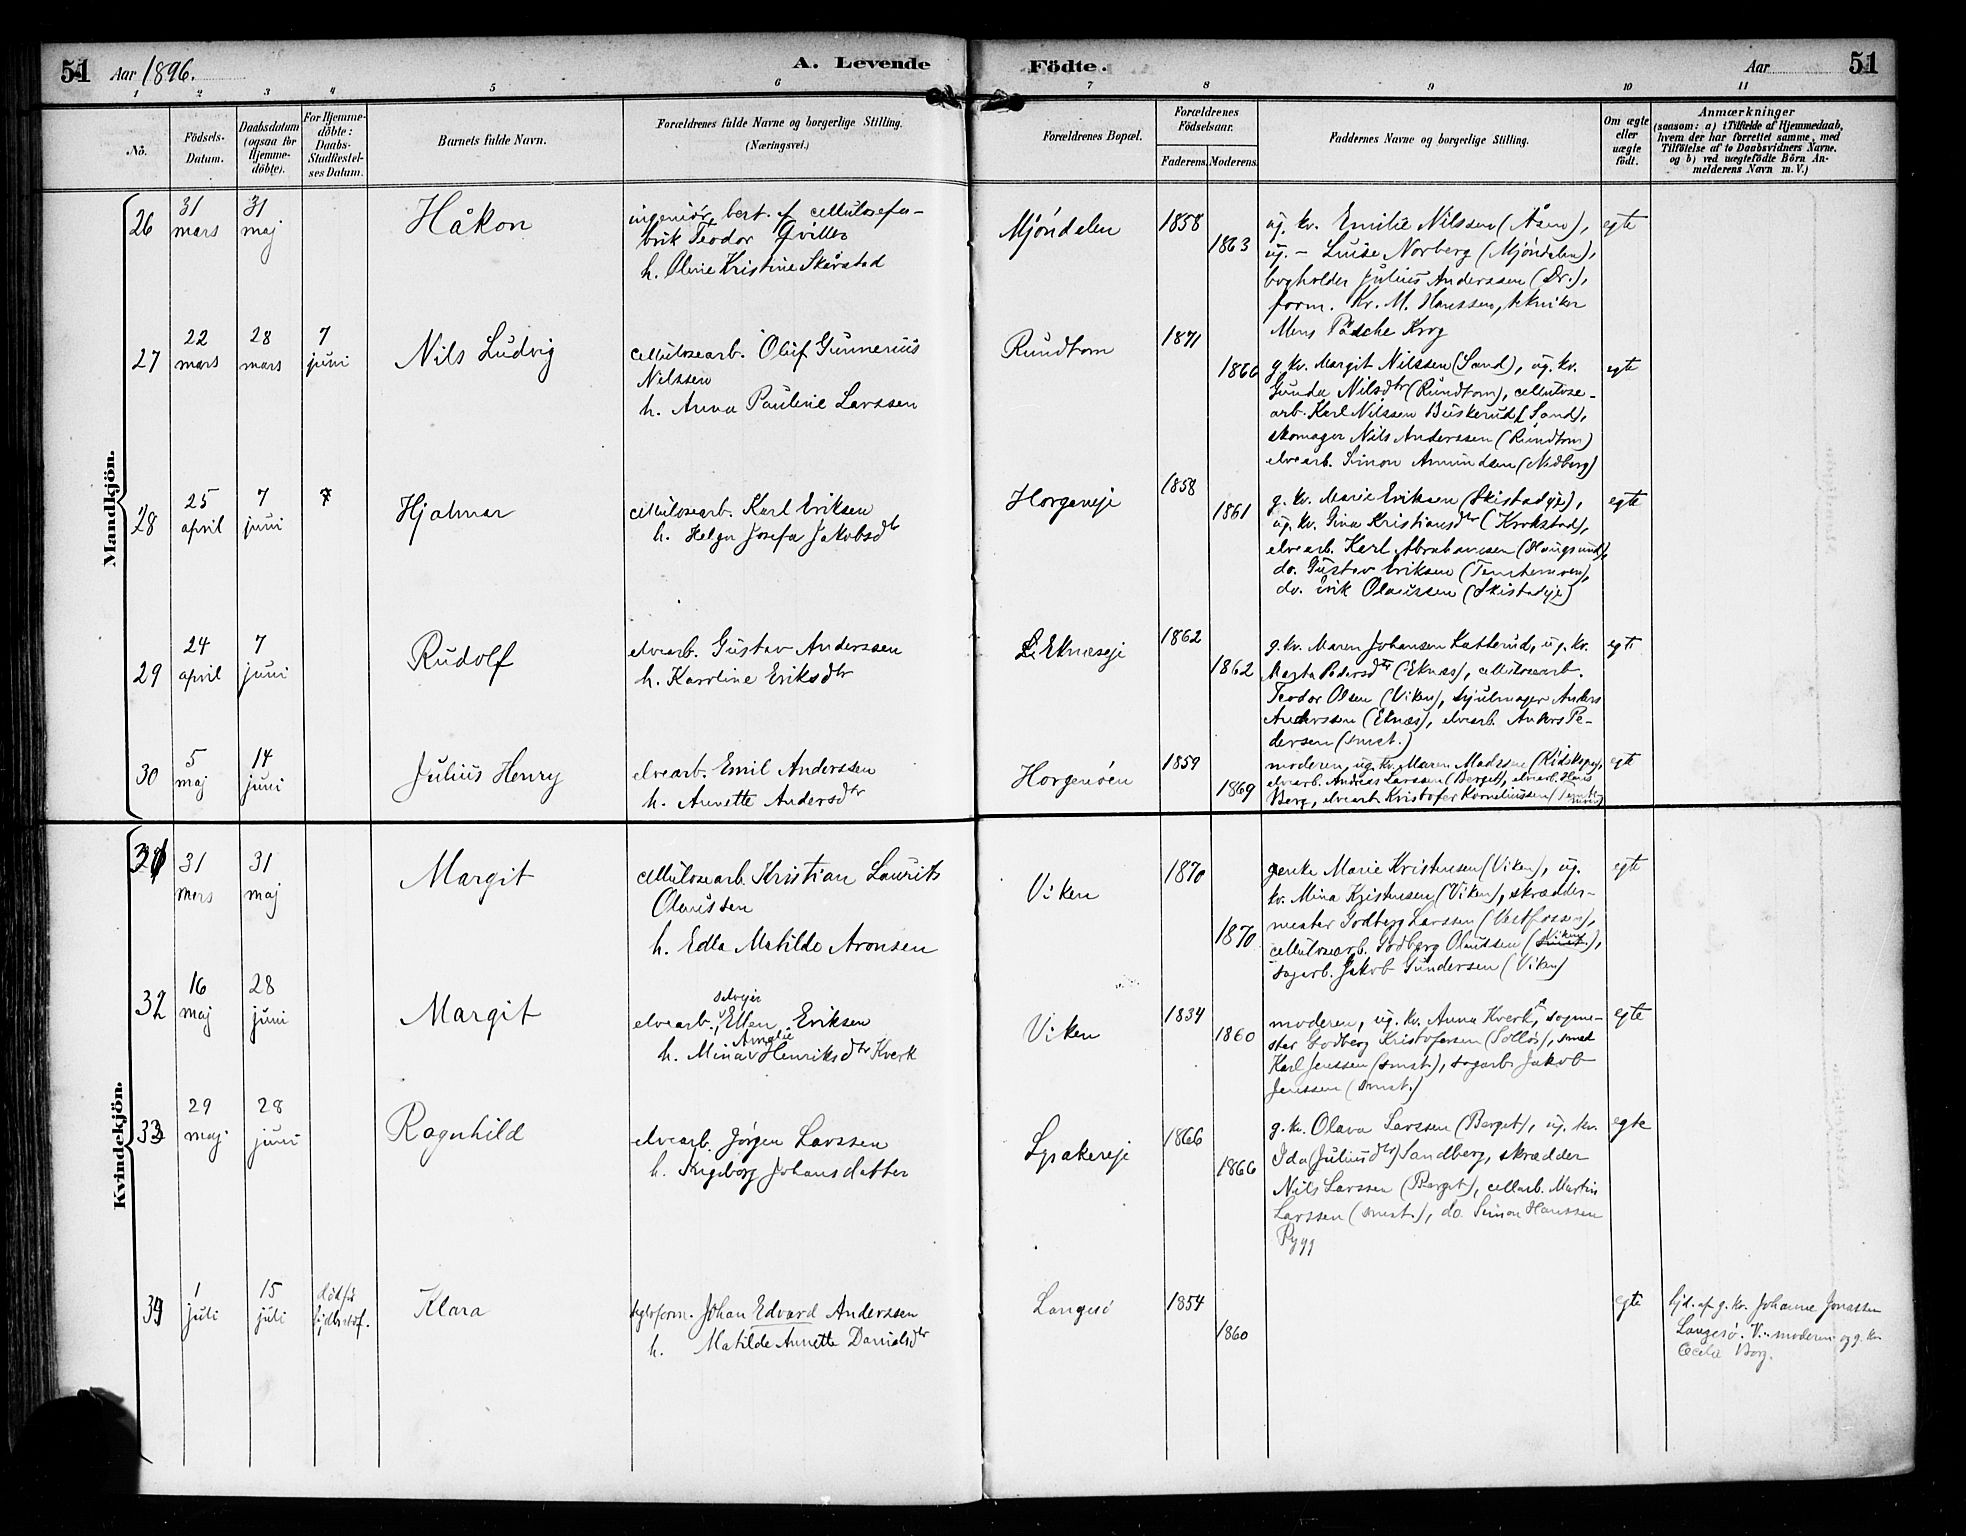 51 Aar 1896. A. Levende Födte. Aar 51
1 2 3 4 5 6 7 8 9 10 11
No.
Födsels-
Datum.
Daabsdatum
(ogsaa for
Hjemme-
döbte).
For Hjemme-
döbte:
Daabs-
Stadfæstel-
ses Datum.
Barnets fulde Navn.
Forældrenes fulde Navne og borgerlige Stilling.
(Næringsvei.)
Forældrenes Bopæl.
Forældrenes
Födselsaar.
Faderens. Moderens.
Faddernes Navne og borgerlige Stilling.
Om ægte
eller
uægte
födt.
Anmærkninger
(saasom: a) i Tilfælde af Hjemmedaab,
hvem der har forrettet samme, med
Tilföielse af to Daabsvidners Navne.
og b) ved uægtefödte Börn An-
melderens Navn m. V.)
Mandkjön.
26
31
mars
31
maj
Håkon
ingeniör, best. af cellulosefa-
brik Teodor
h. Oline Kristine Skårstad
Mjöndalen
1858
1863
ug. kv. Emilie Nilssen (Åsen),
ug. – Luise Norberg (Mjöndalen),
bogholder Julius Anderssen (Dr.),
form. Kr. M. Hanssen, tekniker
Mens Påsche Krog
egte
27
22
mars
28
mars
7
juni
Nils Ludvig
cellulosearb. Oluf Gunnerius
Nilssen
h. Anna Pauline Larssen
Rundtom
1871
1866
g. kv. Margit Nilssen (Sand), ug. kv.
Gunda Nilsdtr (Rundtom), cellulose-
arb. Karl Nilssen Buskerud (Sand),
skomager Nils Anderssen (Rundtom)
elvearb. Simon Amundsen (Nedberg)
egte
28
25
april
7
juni
7
Hjalmar
cellulosearb. Karl Eriksen
h. Helga Josefa Jakobsdtr
Horgeneje
1858
1861
g. kv. Marie Eriksen (Skistadeje),
ug. kv. Gina Kristiansdtr (Krokstad),
elvearb. Karl Abrahamsen (Haugsund),
do. Gustav Eriksen (Temtemoen),
do. Erik Olaussen (Skistadeje)
egte
29
24
april
7
juni
Rudolf
elvearb. Gustav Anderssen
h. Karoline Eriksdtr
L. Eknæseje
1862
1862
g. kv. Maren Johansen Katterud, ug. kv.
Marta Pedersdtr (Eknæs), cellulosearb.
Teodor Olsen (Viken), hjulmager Anders
Anderssen (Eknæs), elvearb. Anders Pe-
dersen (smst.)
egte
30
5
maj
14
juni
Julius Henry
elvearb. Emil Anderssen
h. Annette Andersdtr
Horgenöen
1859
1869
moderen, ug. kv. Maren Madssen
elvearb. Andreas Larssen (Berget), elvearb. Hans
Berg, elvearb. Kristofer Korneliussen (Temtemoen)
egte
Kvindekjön.
31
31
mars
31
maj
Margit
cellulosearb. Kristian Laurits
Olaussen
h. Edla Matilde Aronsen
Viken
1870
1870
enke Marie Kristensen (Viken), ug.
kv. Mina Kristensen (Viken), skrædder-
mester Godberg Larssen (Vestfossen),
cellulosearb. Godberg Olaussen (Viken),
sagarb. Jakob Gundersen (Viken)
egte
32
16
maj
28
juni
Margit
selvejer
elvearb. Ellen Eriksen
h. Mina Amalie Henriksdtr Kverk
Viken
1834
1860
moderen, ug. kv. Anna Kverk, sogne-
ster Godberg Kristofersen (Solløs), smed
Karl Jenssen (smst.), sagarb. Jakob
Jenssen (smst.)
egte
33
29
maj
28
juni
Ragnhild
elvearb. Jörgen Larssen
h. Ingeborg Johansdatter
Lyrakereje
1866
1866
g. kv. Olava Larssen (Berget), ug. kv.
Ida (Juliusdtr) Sandberg, skrædder
Nils Larssen (Berget), cellarb. Martin
Larssen (smst.), do. Simon Hanssen
Rygg
egte
34
1
juli
15
juli
Klara
form. Johan Edvard Anderssen
h. Matilde Annette Danielsdtr
Langesö
1854
1860
egte
hjd. af g. kv. Johanne Jonassen
Langesö. V. moderen og g. kv.
Cecilie Borg.